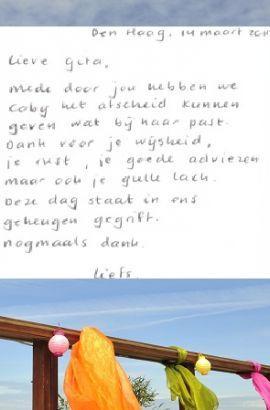 Den Haag, 14 maart 201
Lieve Gita,
Mede door jou hebben we
Coby het afscheid kunnen
geven wat bij haar past.
Dank voor je wijsheid,
je rust, je goede adviezen
maar ook je gulle lach.
Deze dag staat in ons
geheugen gegrift.
nogmaals dank.
Liefs,